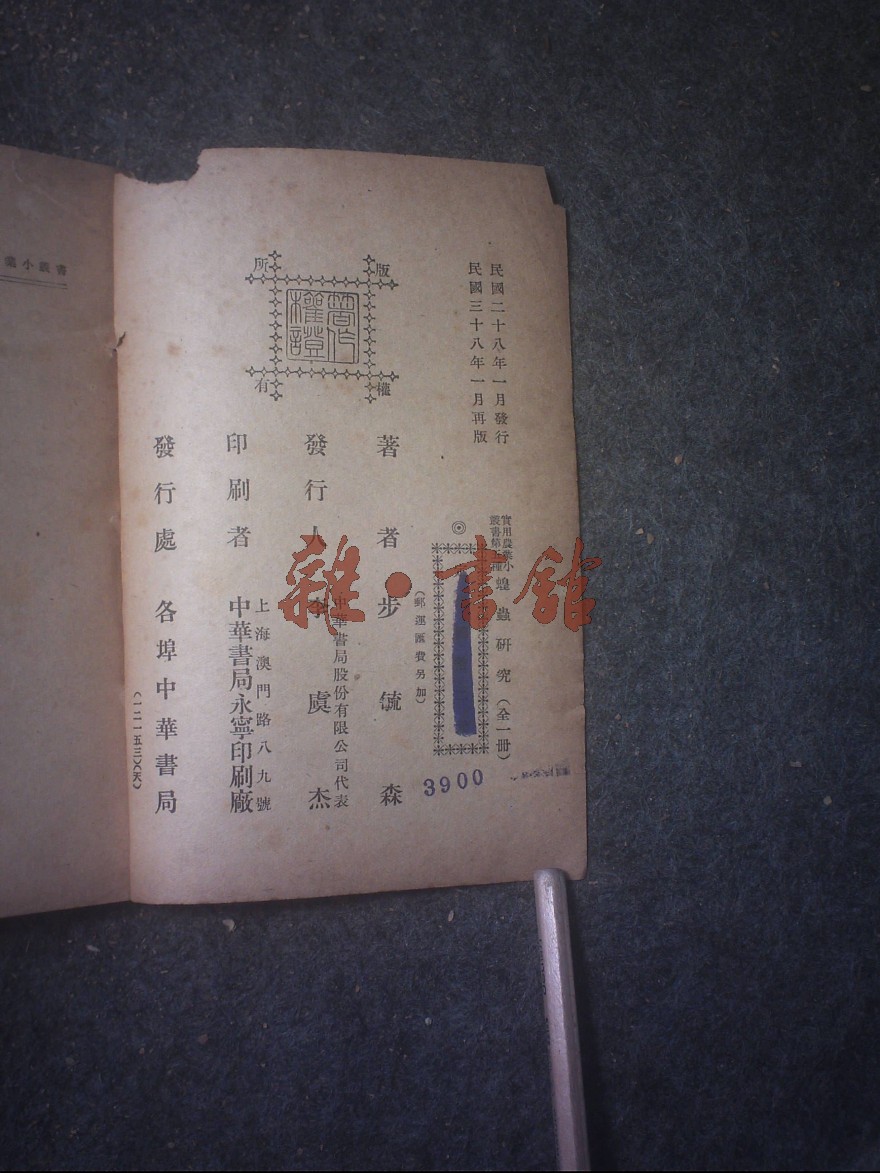 民國二十八年一月發行
民國三十八年一月再版
實用農業小
叢書第五種
蝗蟲研究（全一冊）
◎
（郵運匯費另加）
3900
版權所有
著作權證
著者 步毓森
中華書局股份有限公司代表
發行人 李虞杰
上海澳門路八九號
印刷者 中華書局永寧印刷廠
發行處 各埠中華書局
（一二一五三）（天）
業小叢書
雜·書館